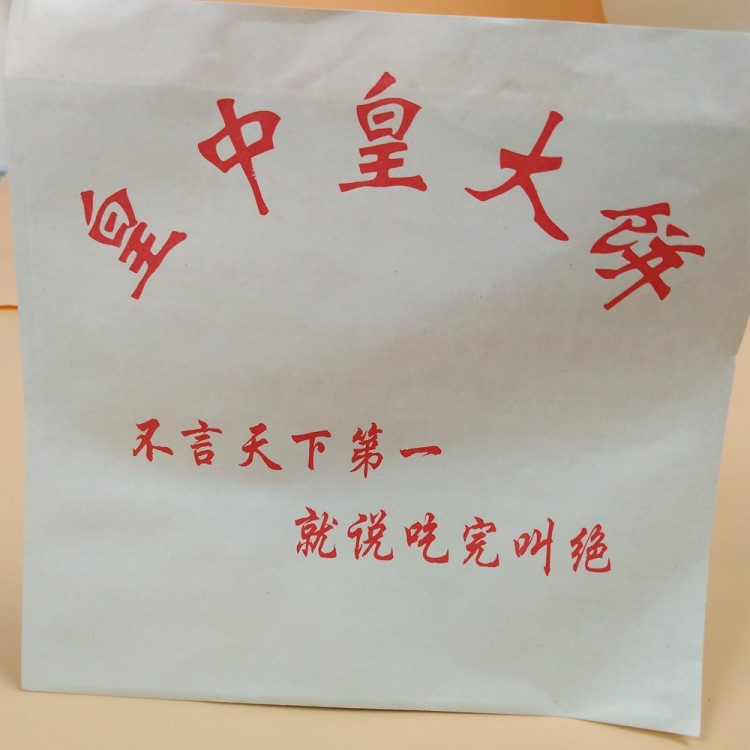 皇中皇大饼
不言天下第一
就说吃完叫绝